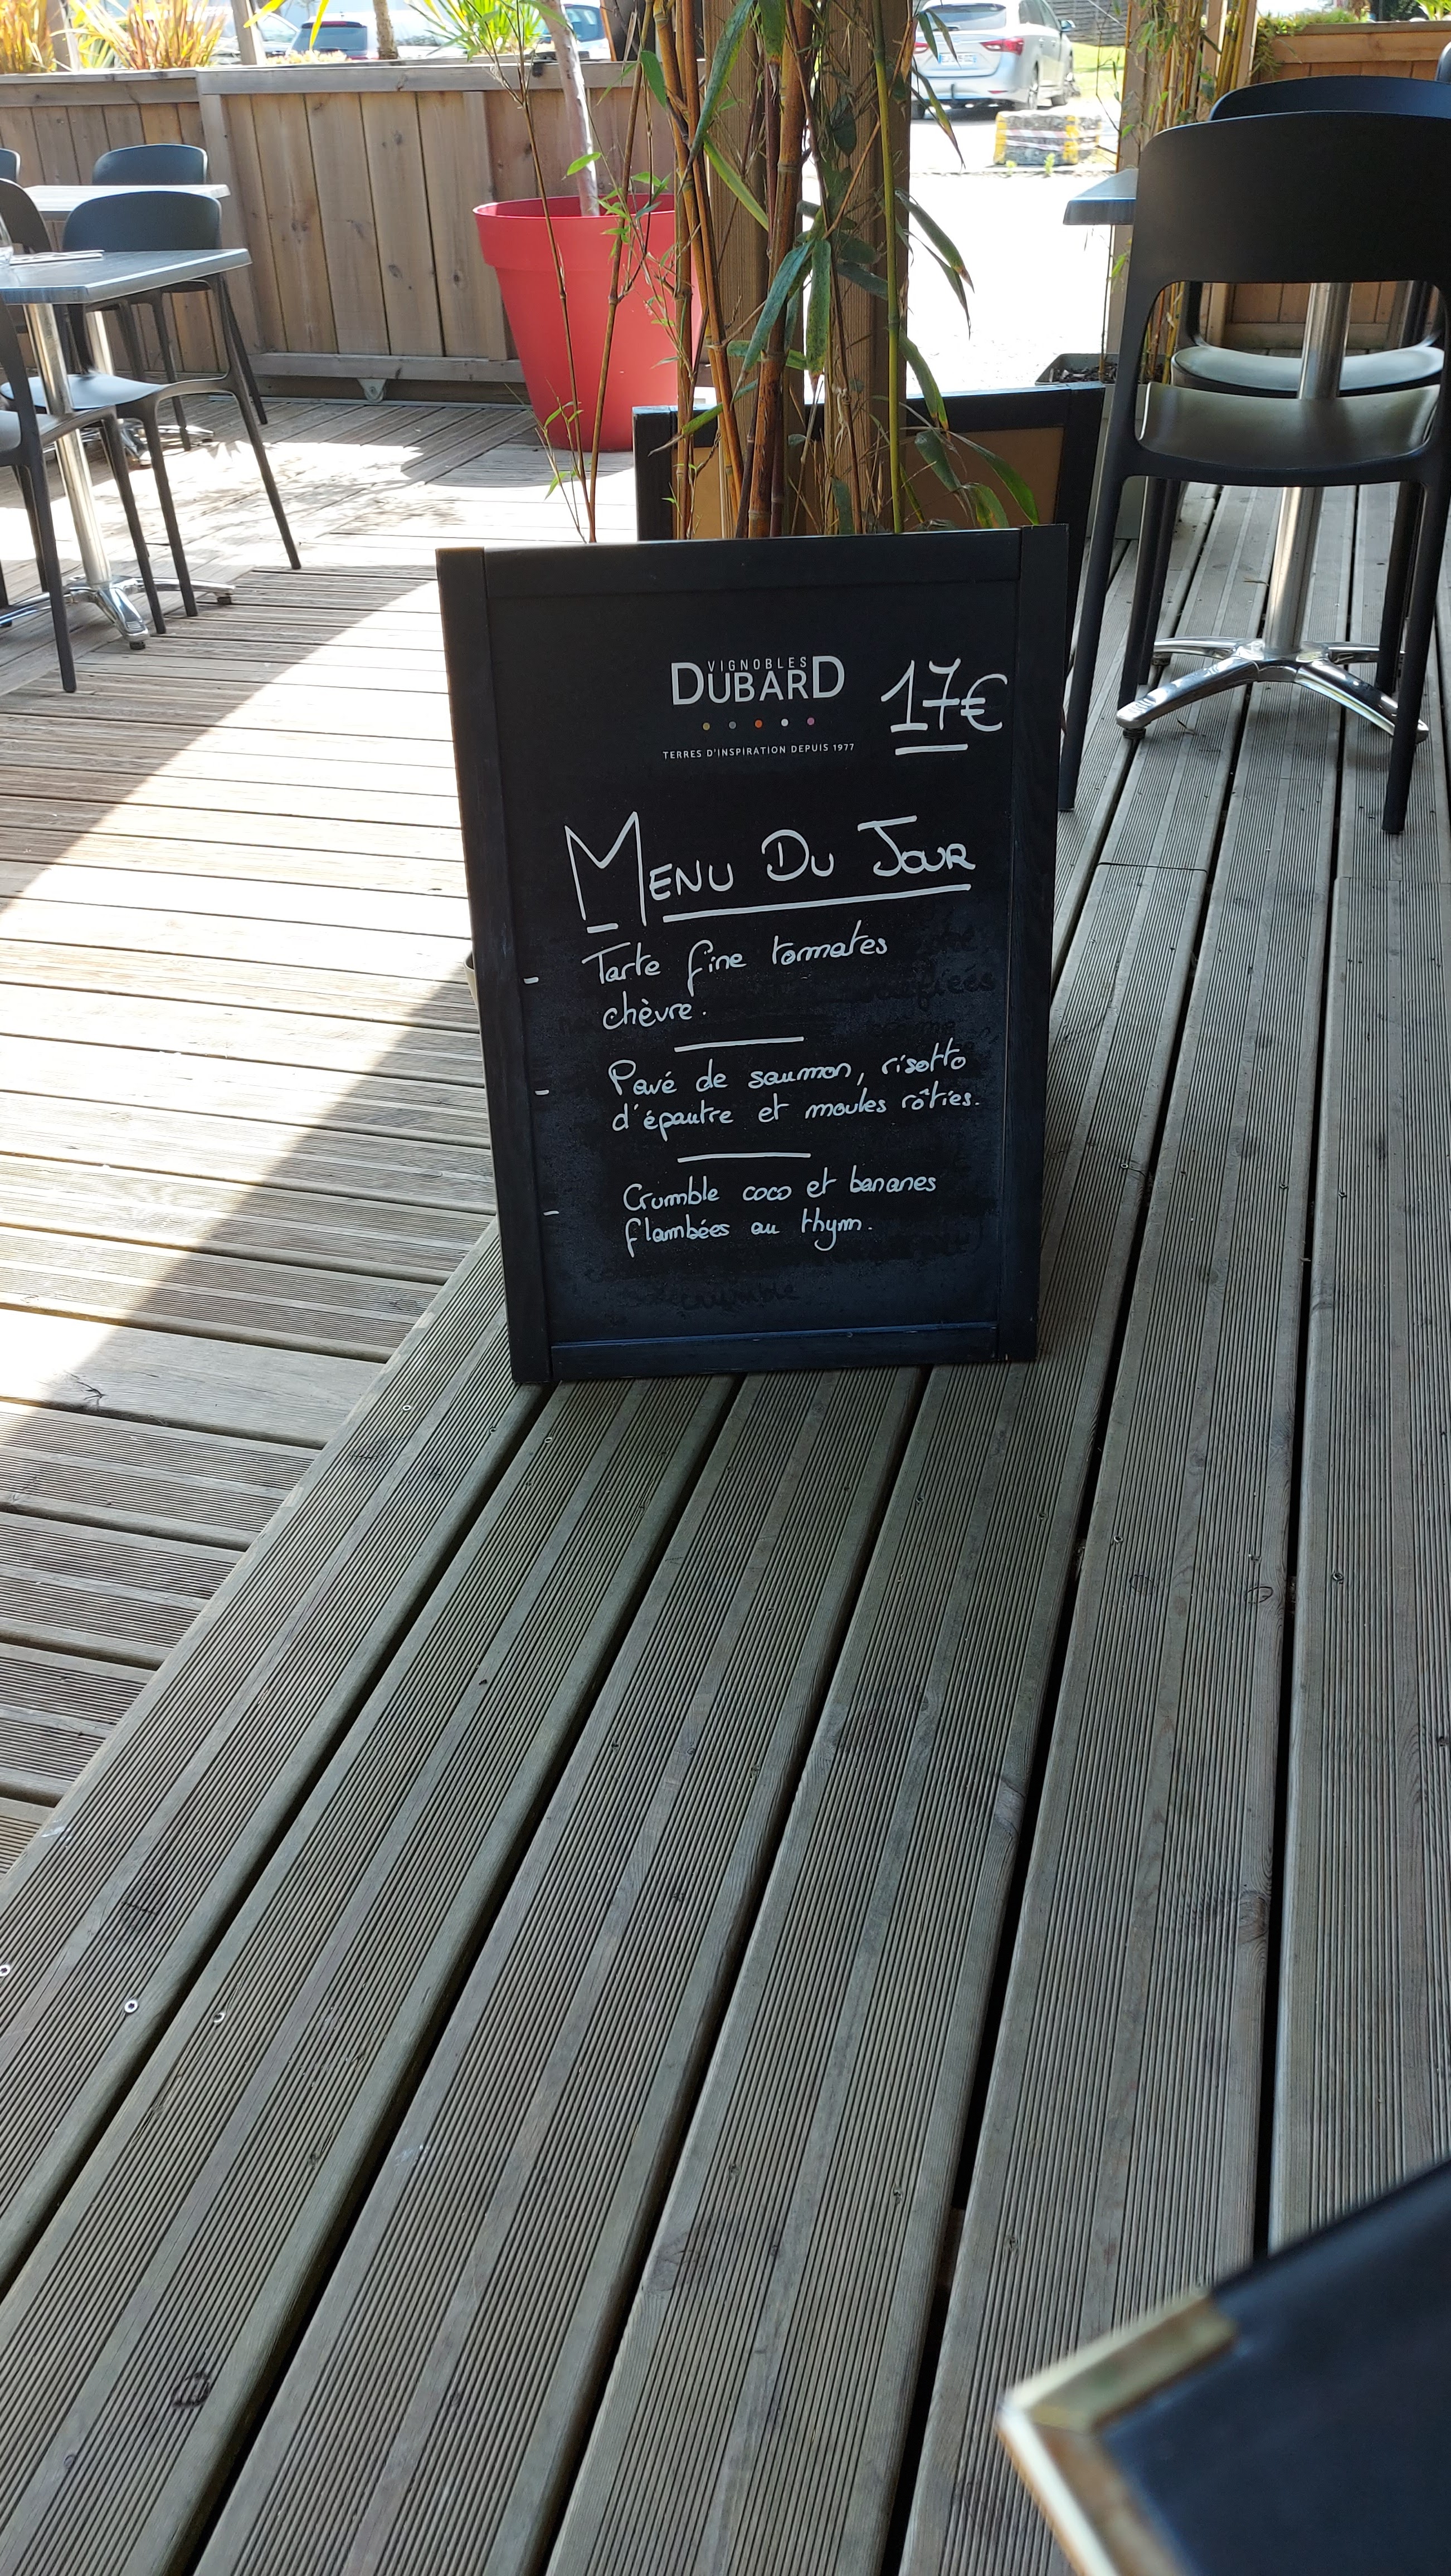 VIGNOBLES
DUBARD
17€
TERRES D'INSPIRATION DEPUIS 1977
MENU DU JOUR
- Tarte fine tomates
chèvre.
- Pavé de saumon, risotto
d'épautre et moules rôties.
- Crumble coco et bananes
flambées au thym.
crumble